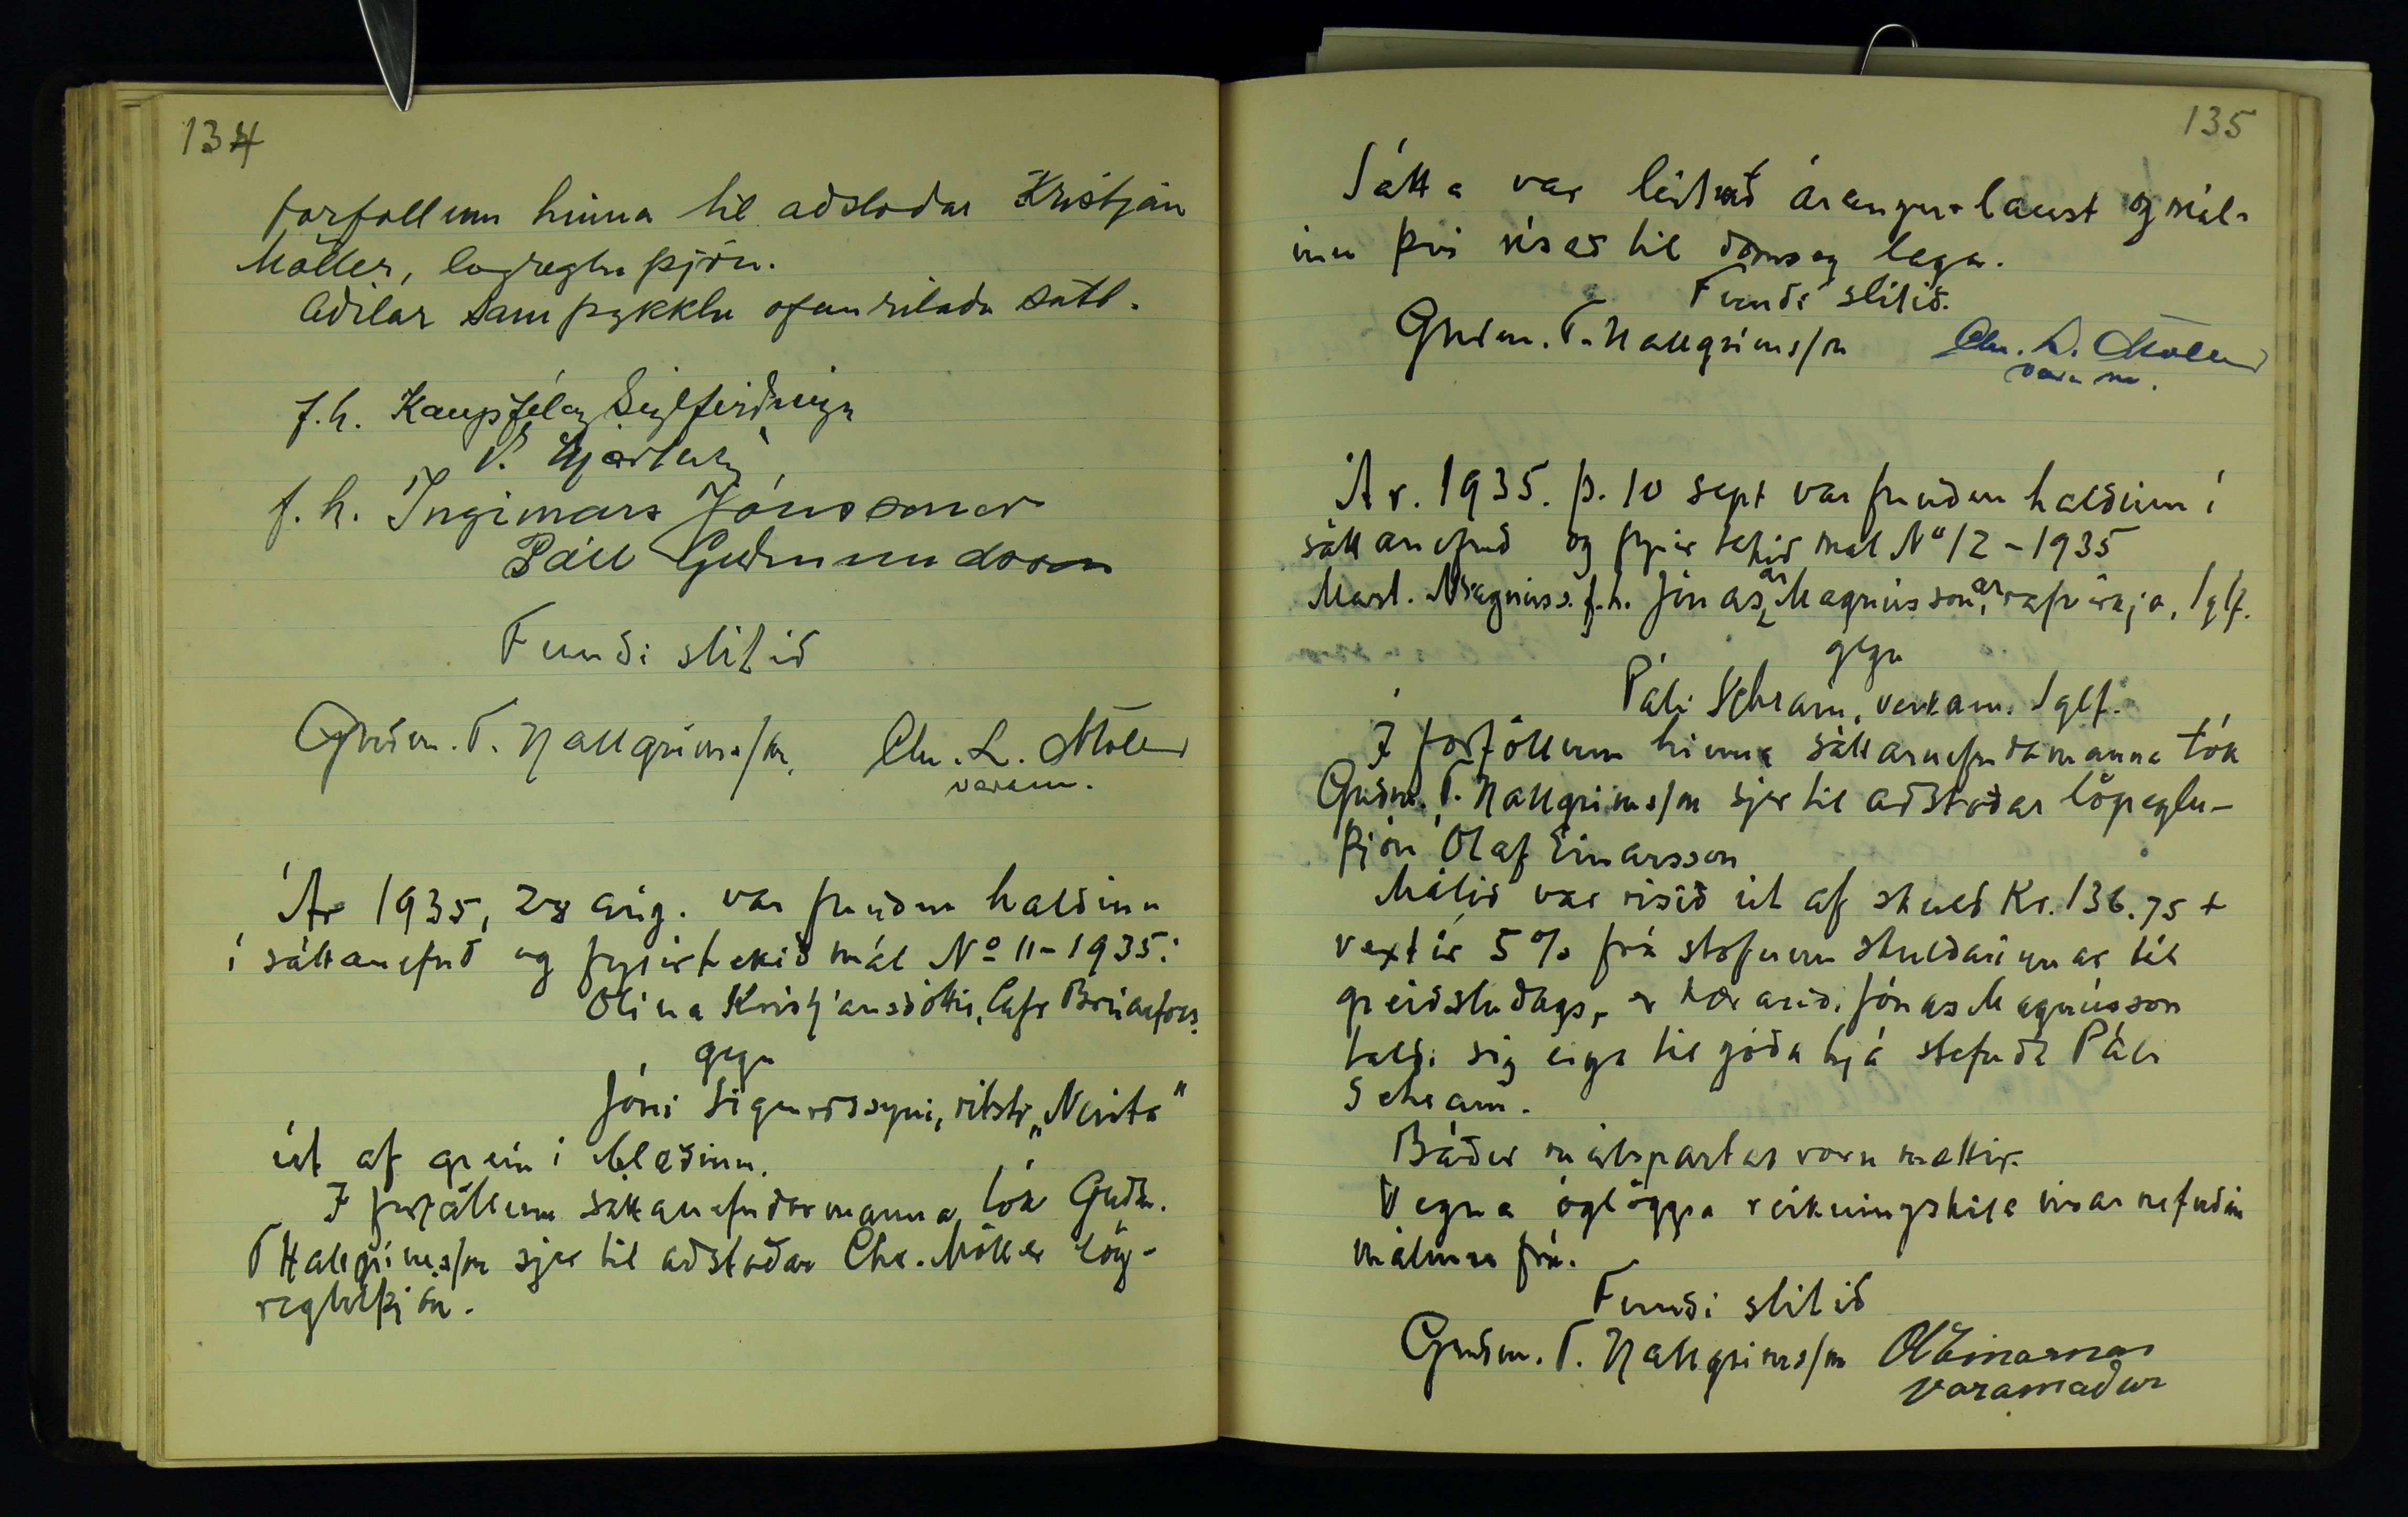 134
forfollum hinna til aðstoðar Kristján
Möller, lögregluþjón.
Aðilar samþykktu ofanritaða sátt.
f.h. Kaupfélag Siglfirðinga
f.h. Ingimars Jónssonar
Páll Guðmundsson
Fundi slitið
Guðm. T. Hallgrímss/on, Chr. L. Möller
varam.
Ár 1935, 28 aug. var fundur haldinn
í sáttanefnd og fyrirtekið mál Nº 11-1935:
Olína Kristjánsdóttir, Cafe Brúarfoss
gegn
Jóni Sigurðssyni, ritstj. „Neista"
út af grein í blaðinu.
I forföllum sáttanefndarmanna tók Guðm.
T Hallgrímss/on sjer til aðstoðar Chr. Möller lög-
regluþjón.
135
Sátta var leitað árangurslaust og mál-
inu því vísað til dómsog laga.
Fundi slitið.
Guðm. T. Hallgrímss/on Chr. L. Möller
varam.
Ár. 1935. þ. 10 sept var fundur haldinn í
sáttanefnd og fyrir tekið mál Nº 12-1935
Marl. Magnúss. f.h. Jónasar Magnússonar, rafvirkja, Sglf.
gegn
Páli Schram, verkam. Sglf.
I forföllum hinna sáttarnefndamanna tók
Guðm. T. Hallgrímss/on sjer til aðstoðar lögreglu-
þjón Ólaf Einarsson
Málið var risið út af skuld Kr. 136.75 +
vextir 5% frá stofnun skuldarinnar til
greiðsludags, er kærandi Jónas Magnússon
taldi sig eiga til góða hjá stefnda Páli
Schram.
Báðir málspartar voru mættir.
Vegna óglöggra reikningsskila vísar nefndin
málinu frá.
Fundi slitið
Guðm. T. Hallgrímss/on Ól Einarsson
varamaður